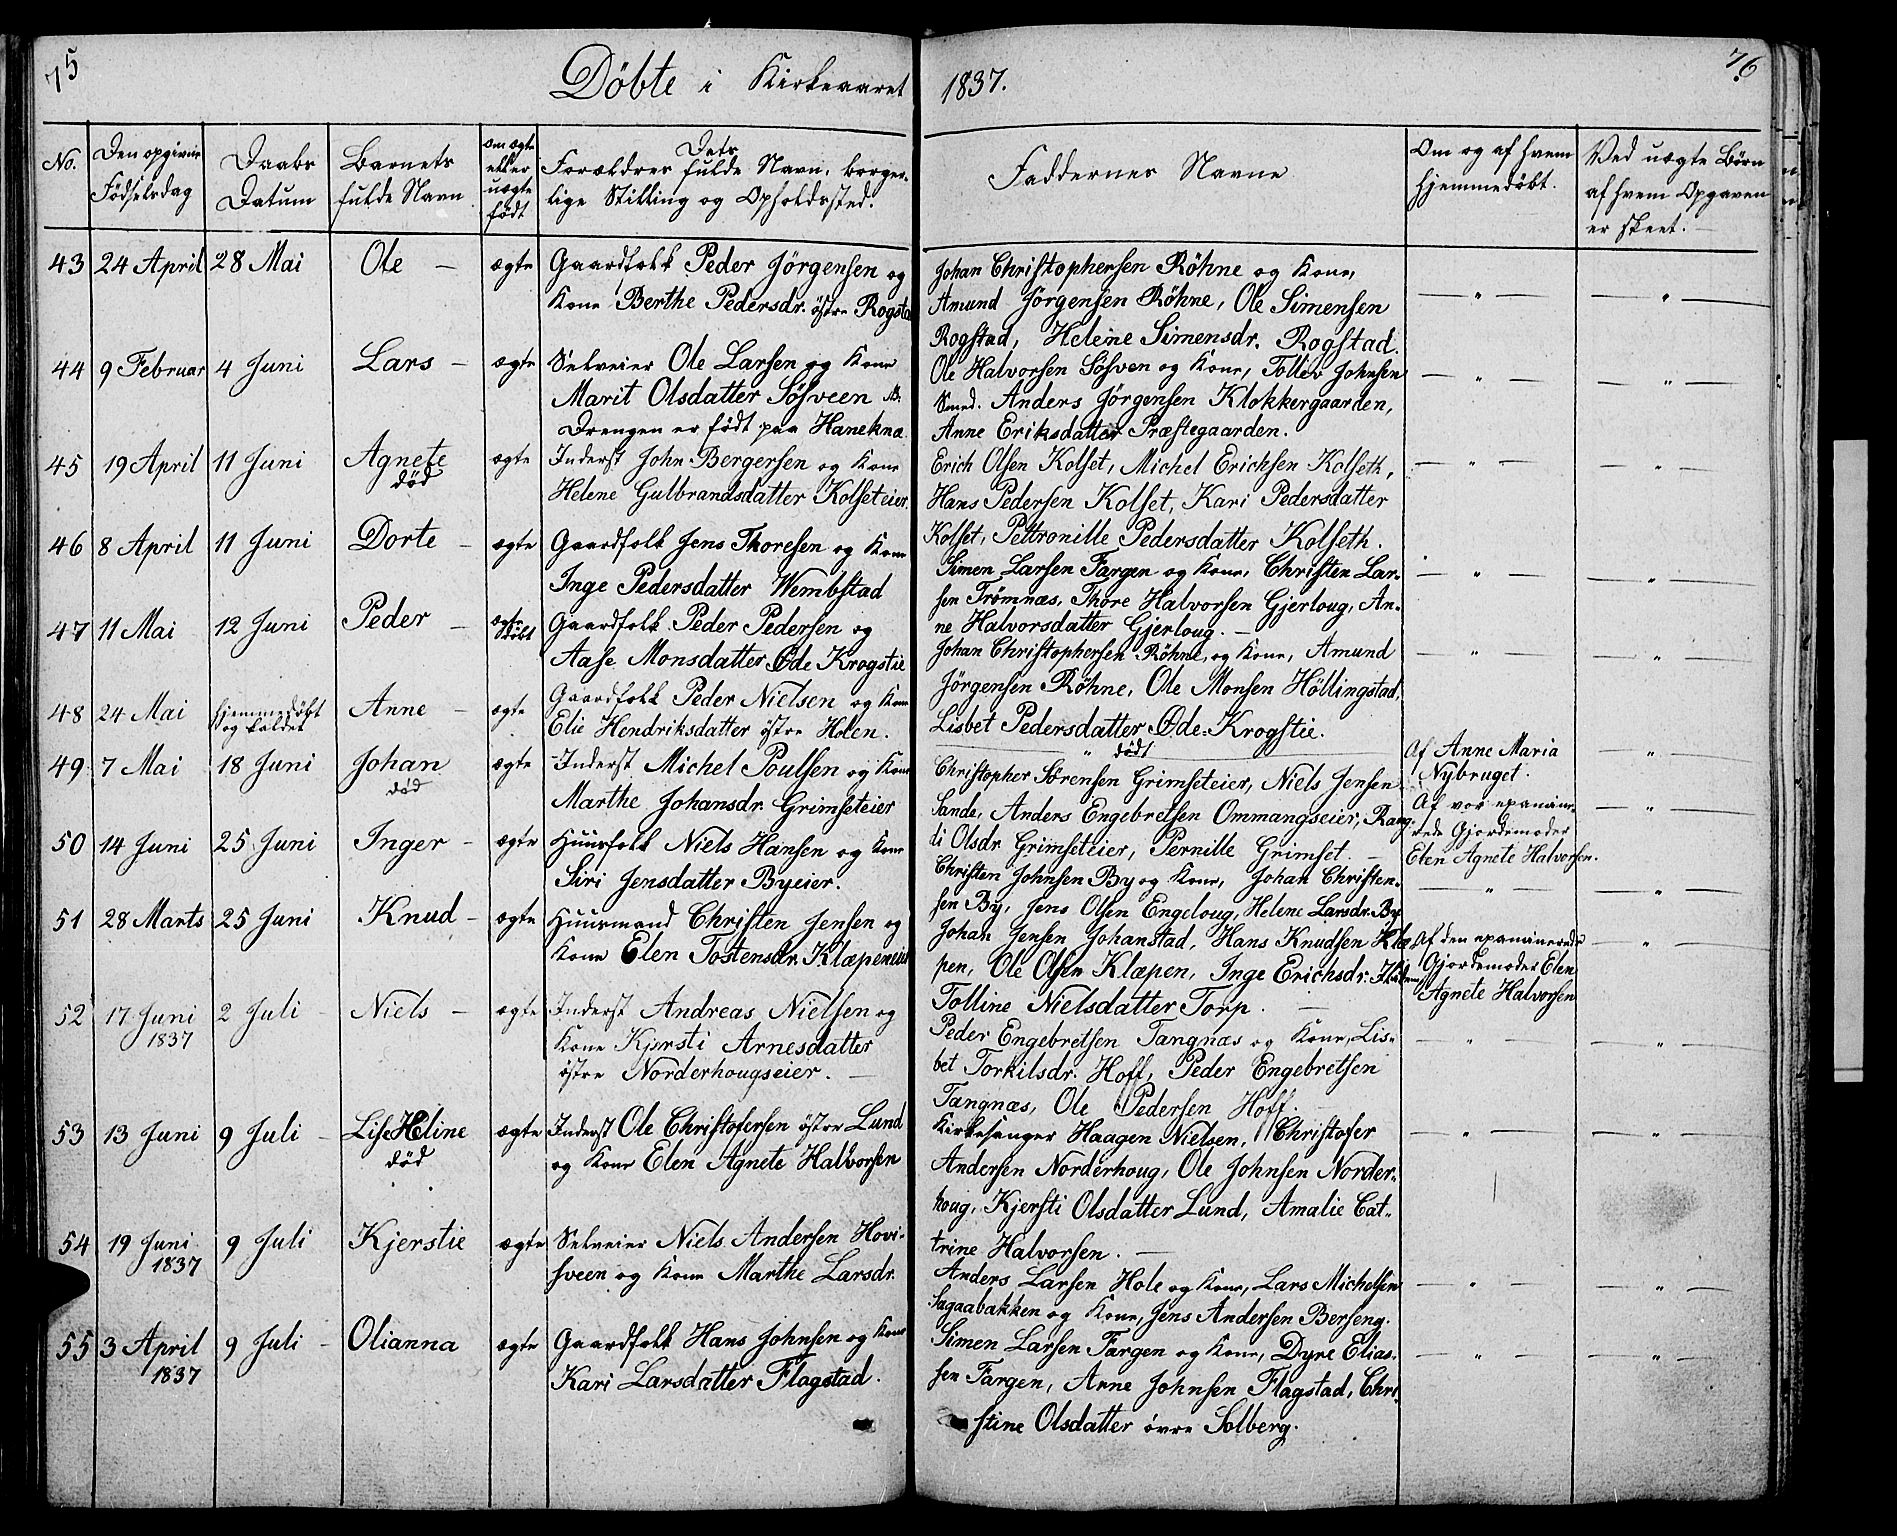 75
Döbte i Kirkeaaret
1837.
76
No.
Den opgivne Fødselsdag
Daabs Datum
Barnets fulde Navn
om ægte eller uægte födt
Forældres fulde Navn, borger-
lige Stilling og Opholdssted.
Faddernes Navne
Om og af hvem hjemmedöbt.
Ved uægte Börn af hvem Opgaven er skeet.
43 24 April 28 Mai Ole - ægte Gaardfolk Peder Jörgensen og
Kone Berthe Pedersdr. östre Rogstad
Johan Christophersen Röhne og Kone,
Amund Jörgensen Röhne, Ole Simensen
Rogstad, Helene Simensdr. Rogstad.
44 9 Februar 4 Juni Lars - ægte Selveier Ole Larsen og Kone
Marit Olsdatter Sösveen
Drengen er födt paa Haneknæ
Ole Halvorsen Sösven og Kone, Tollev Johnsen
Smed. Anders Jörgensen Klokkergaarden,
Anne Eriksdatter Præstegaarden.
45 19 April 11 Juni Agnete ægte Inderst John Bergersen og Kone
död
Helene Gulbrandsdatter Kolseteier.
Erich Olsen Kolset, Michel Erichsen Kolseth,
Hans Pedersen Kolset, Kari Pedersdatter
Kolset, Pettronille Pedersdatter Kolseth.
46 8 April 11 Juni Dorte - ægte Gaardfolk Jens Thoresen og Kone
Inge Pedersdatter Wembstad
Simen Larsen Fargen og Kone, Christen Lar-
sen Trömnæs, Thore Halvorsen Gjerloug, An-
ne Halvorsdatter Gjerloug. -
47 11 Mai 12 Juni Peder - ægte Gaardfolk Peder Pedersen og
Aase Monsdatter Öde Krogstie
Johan Christophersen Röhne, og Kone, Amund
Jörgensen Röhne, Ole Monsen Höllingstad,
Lisbet Pedersdatter Öde-Krogstie.
48 24 Mai hjemmedöbt og kaldet Anne - ægte Gaardfolk Peder Nielsen og Kone
Elie Hendriksdatter östre Holen.
dödt
Af Anne Maria
Nybruget.
49 7 Mai 18 Juni Johan ægte Inderst Michel Poulsen og Kone
död
Marthe Johansdr. Grimseteier
Christopher Sörensen Grimseteier, Niels Jensen
Sande, Anders Engebretsen Ommangseier, Rang-
di Olsdr Grimseteier, Pernille Grimset. -
Af vor examine-
rede Gjordemoder
Elen Agnete Halvorsen.
50 14 Juni 25 Juni Inger - ægte Huusfolk Niels Hansen og Kone
Siri Jensdatter Byeier.
Christen Johnsen By og Kone, Johan Christen-
sen By, Jens Olsen Engeloug, Helene Larsdr. By
51 28 Marts 25 Juni Knud - ægte Huusmand Christen Jensen og
Kone Elen Tostensdr. Klæpeneier
Johan Jensen Johanstad, Hans Knudsen Klæ-
pen, Ole Olsen Klæpen, Inge Erichsdr.
Tolline Nielsdatter Torp. -
Af den examinerede
Gjordemoder Elen
Agnete Halvorsen
52 17 Juni 1837 2 Juli - Niels - ægte Inderst Andreas Nielsen og
Kone Kjersti Arnesdatter
östre Norderhougseier. -
Peder Engebretsen Tangnæs og Kone, Lis-
bet Torkilsdr. Hoff, Peder Engebretsen
Tangnæs, Ole Pedersen Hoff.
53 13 Juni 9 Juli - Lise Heline ægte Inderst Ole Christofersen östre Lund
död
og Kone Elen Agnete Halvorsen
Kirkesanger Haagen Nielsen, Christofer
Andersen Norderhoug, Ole Johnsen Norder-
houg, Kjersti Olsdatter Lund, Amalie Cat-
trine Halvorsen. -
54 19 Juni 1837 9 Juli Kjerstie ægte Selveier Niels Andersen Hovi-
sveen og Kone Marthe Larsdr.
Anders Larsen Hole og Kone, Lars Michelsen
Sagaabakken og Kone, Jens Andersen Berseng.
55 3 April 1837 9 Juli - Olianna ægte Gaardfolk Hans Johnsen og Kone
Kari Larsdatter Flagstad.
Simen Larsen Fargen og Kone, Dyre Elias-
sen Fargen, Arne Johnsen Flagstad, Chri-
stine Olsdatter övre Solberg.